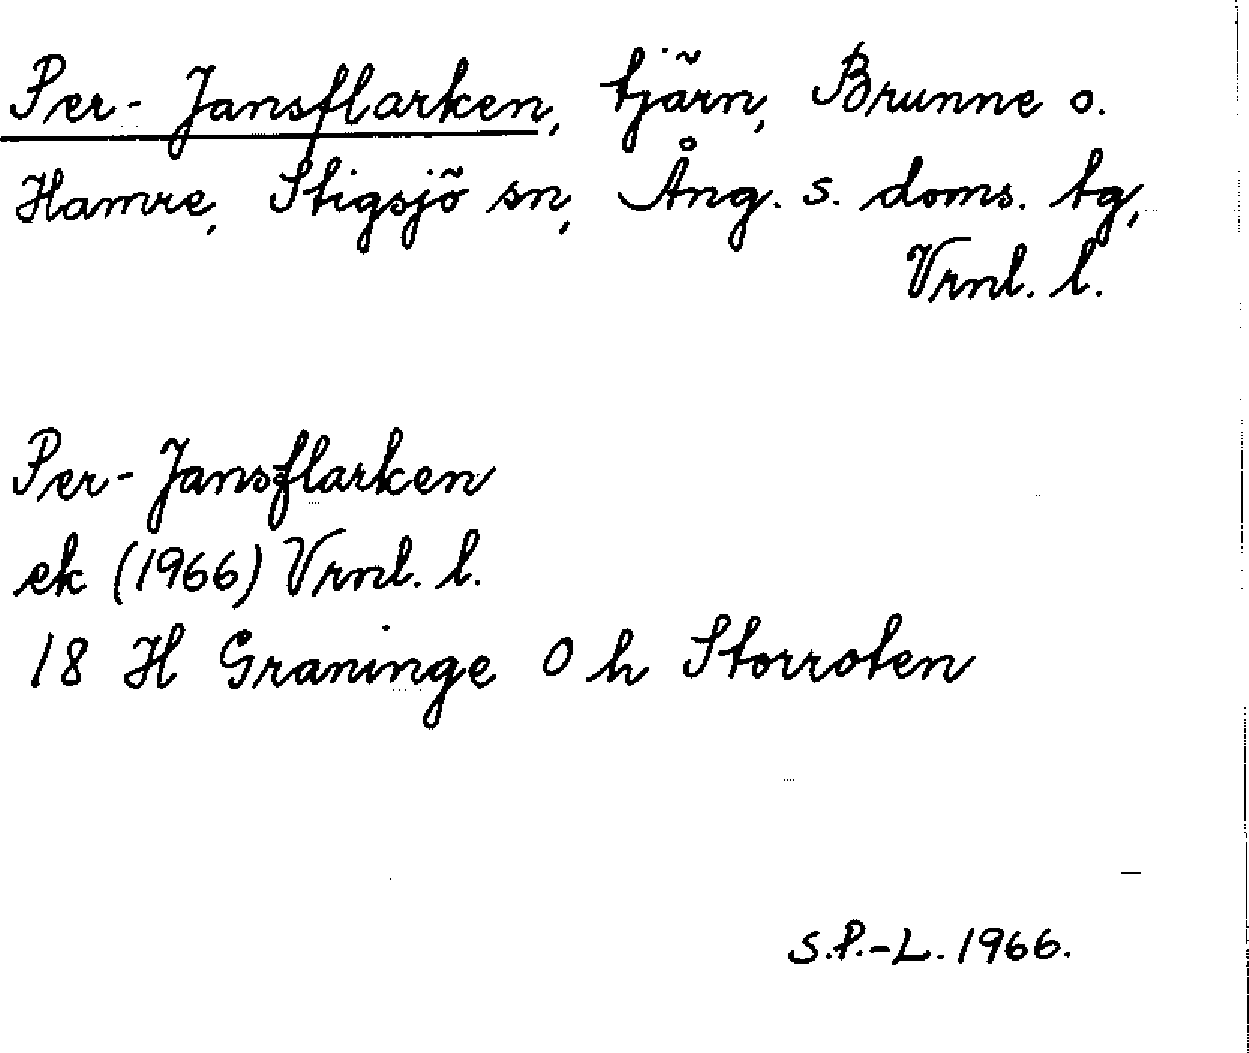 Per-Jansflarken, tjärn, Brunne o.
Hamre, Stigsjö sn, Ång. s. doms. tg,
Vrnl. l.
Per-Jansflarken
ek (1966) Vrnl. l.
18 H Graninge O h Storroten
S.P.-L. 1966.